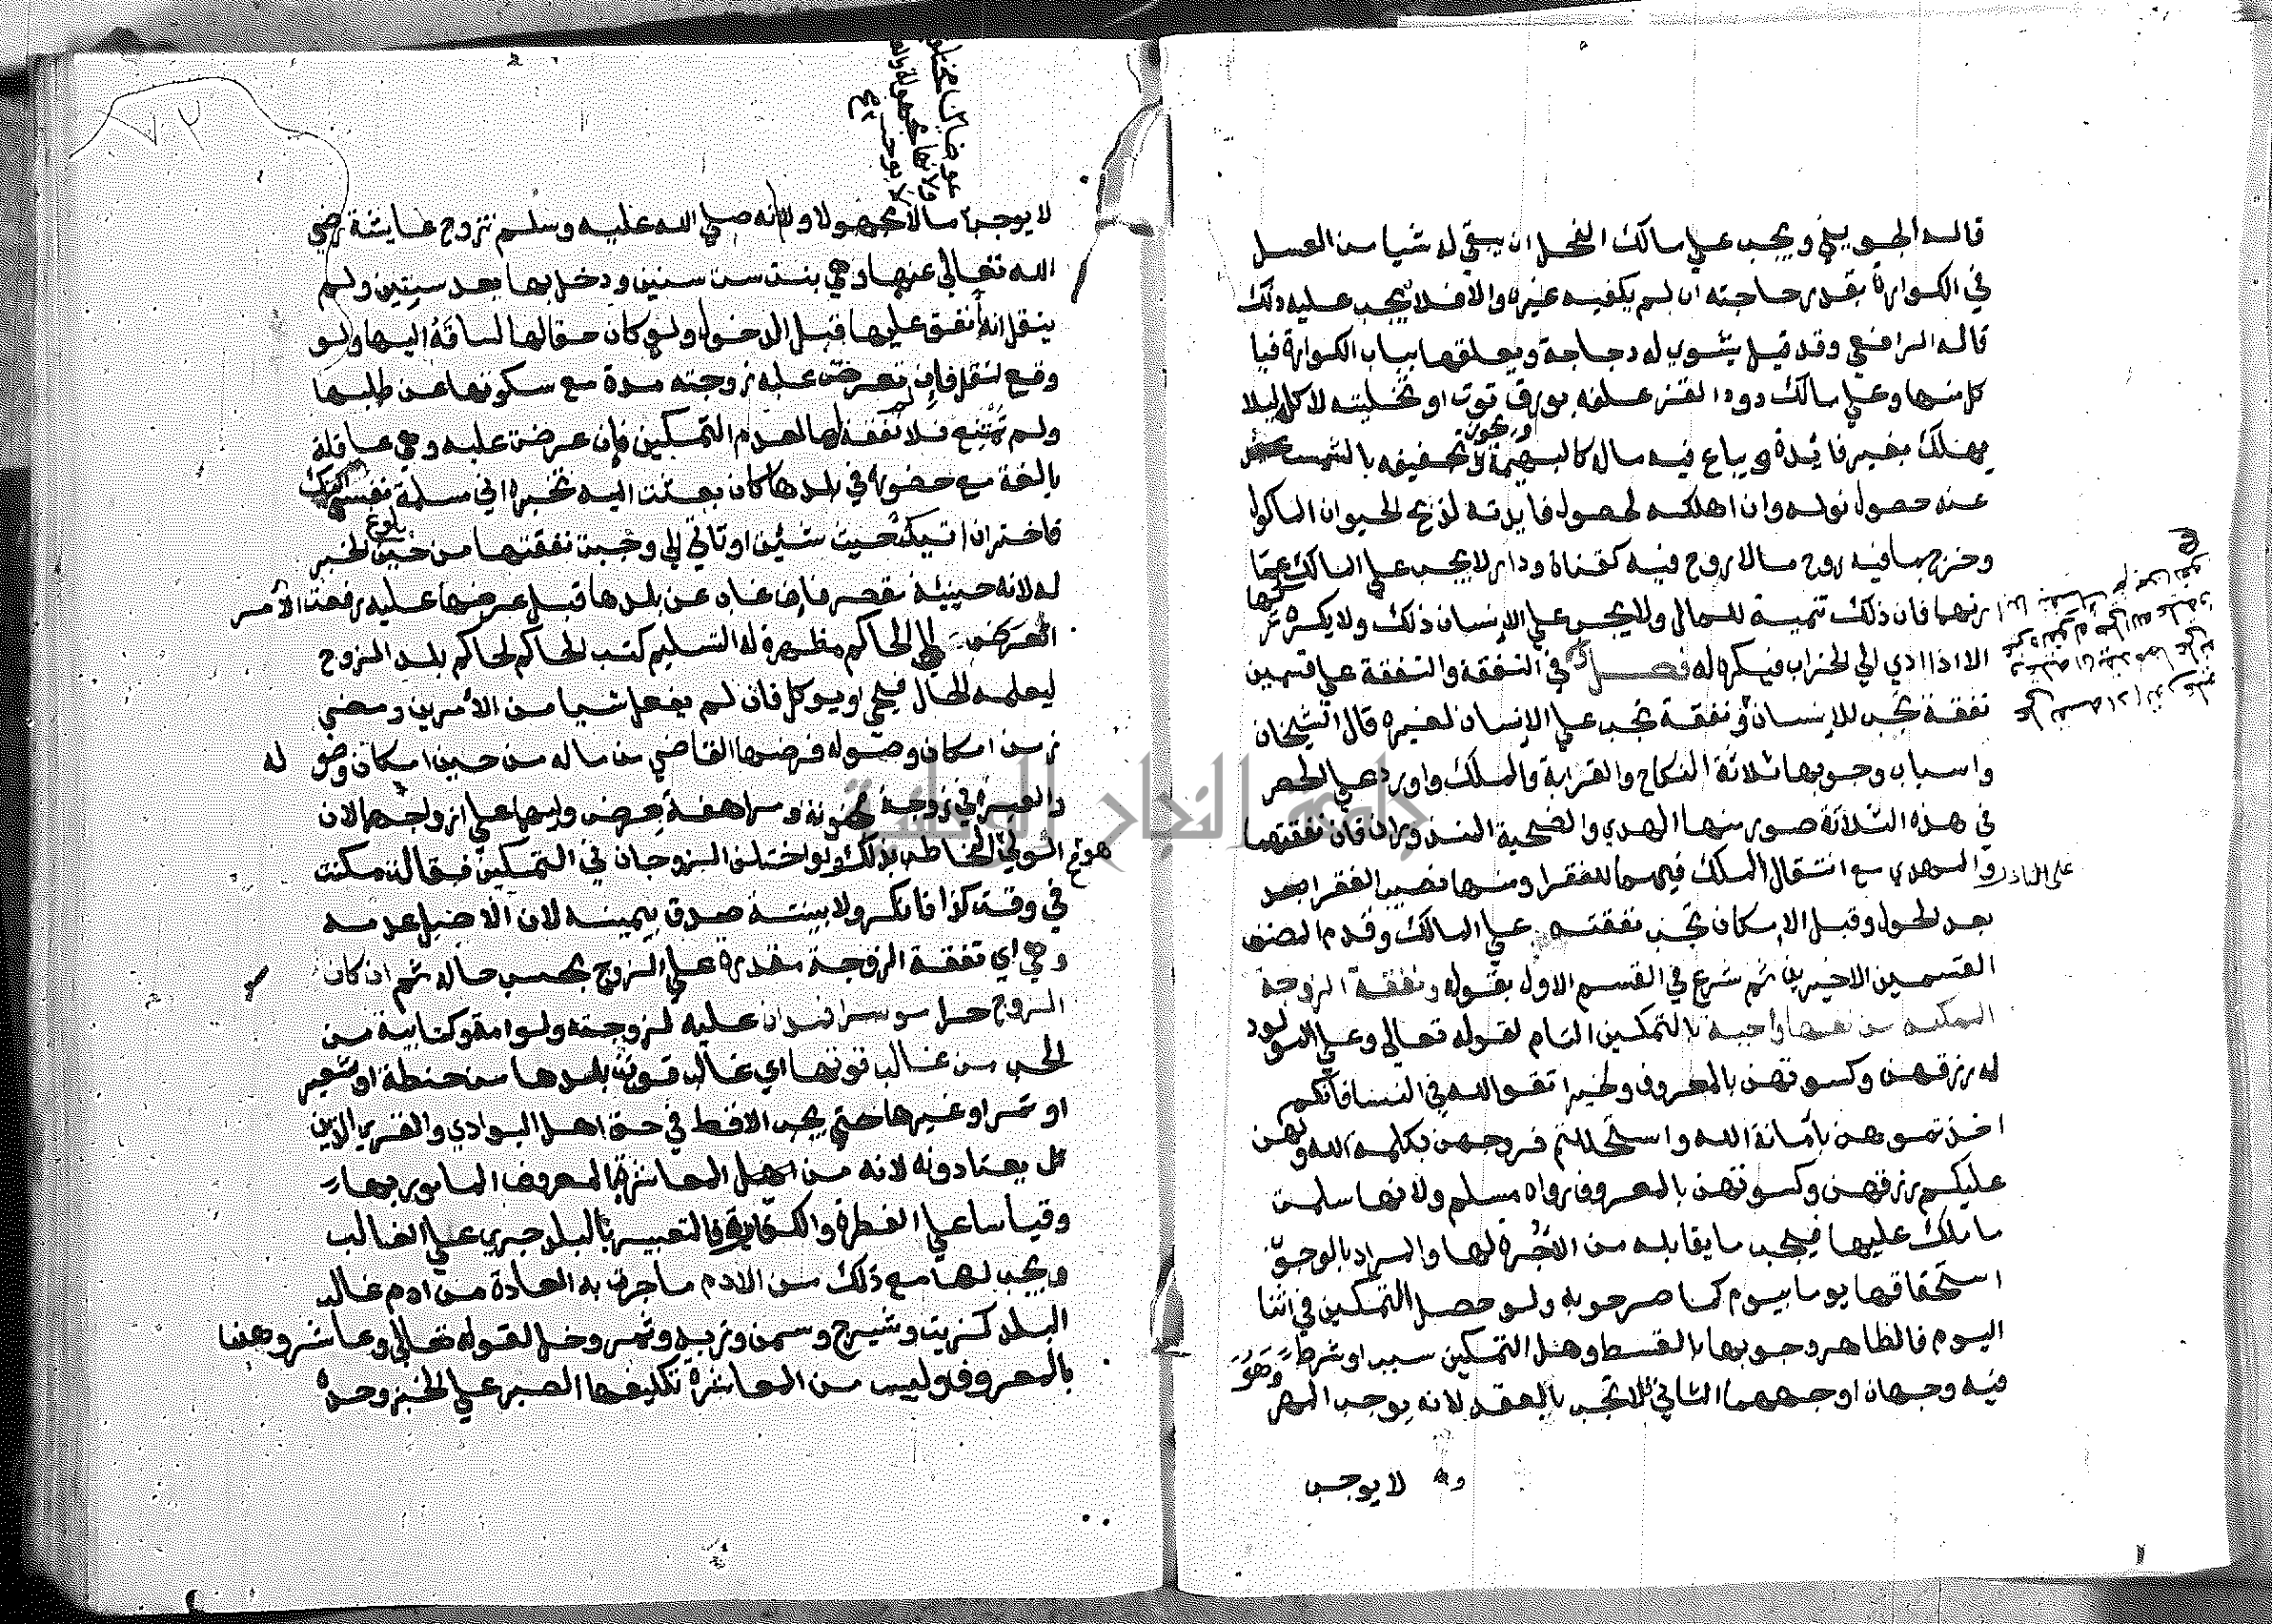 قاله الجويني ويجب علي مالك النحل ان يبقي له شيا من العسل
في الكوارة بقدر حاجته ان لم يكفيه غيره والا فلا يجب عليه ذلك
قاله الرافعي وقد قيل يشوي له دجاجة ويعلقها بباب الكوارة فيا
كل منها وعلي مالك دود القز علفه بورق توت او تخليته لاكله ليلا
يهلك بغير فايدة ويباع فيه ماله كالبهيمة ويجوز تجفيفه بالشمس
عند حصول نوله وان اهلكه لحصول فايدته لذبح الحيوان الماكول
وخرج بما فيه روح مالا روح فيه كقناة ودار لا يجب علي المالك عما
رتهما فان ذلك تنمية للمال ولا يجب علي الانسان ذلك ولا يكره تركها
الا اذا ادي الي الخراب فيكره له فصل في النفقة والنفقة علي قسمين
نفقة تجب للانسان ونفقة تجب علي الانسان لغيره قال الشيخان
واسباب وجوبها ثلاثة النكاح والقرابة والملك واورد علي الحصر
في هذه الثلاثة صور منها الهدي والاضحية المنذوران فان نفقتهما
علي الناذر والمهدي مع انتقال الملك فيهما للفقرا ومنها نصيب الفقرا بعد
بعد الحول وقبل الامكان تجب نفقته علي المالك وقدم المصنف
القسمين الاخيرين ثم شرع في القسم الاول بقوله ونفقة الزوجة
الممكنه من نفسها واجبة بالتمكين التام لقوله تعالي وعلي المولود
له رزقهن وكسوتهن بالمعروف ولخبر اتقوا الله في النسا فانكم
اخذتموهن بامانة الله واستحللتم فروجهن بكلمة الله ولهن
عليكم رزقهن وكسوتهن بالمعروف رواه مسلم ولانها سلمت
ما ملك عليها فيجب ما يقابله من الاجرة لها والمراد بالوجوب
استحقاقها يوما بيوم كما صرحوبه ولو حصل التمكين في اثنا
اليوم فالظاهر وجوبها بالقسط وهل التمكين سبب او شرط
فيه وجهان اوجههما الثاني فلا تجب بالعقد لانه يوجب المهر وهو
لا يوجب
لا يوجب مالا مجهولا ولانه صلي الله عليه وسلم تزوج عايشة رضي
الله تعالي عنها وهي بنت ست سنين ودخل بها بعد سنتين ولم
ينقل انه انفق عليها قبل الدخول ولو كان حقا لها لساقه اليها ولو
وقع لنقل فان لم تعرض عليه زوجته مدة مع سكوتها عن طلبها
ولم تمتنع فلا نفقة لها لعدم التمكين فان عرضت عليه وهي عاقلة
بالغة مع حضوره في بلدها كان بعثت اليه تخبره اني مسلمة نفسي اليك
فاختر ان اتيك حيث شئت او تاتي الي وجبت نفقتها من حين بلوغ الخبر
له لانه حينيئذ مقصر فان غاب عن بلدها قبل عرضها عليه رفعت الامر
الي الحاكم مظهرة له التسليم كتب الحاكم لحاكم بلد الزوج
ليعلمه الحال فيجي او يوكل فان لم يفعل شيا من الامرين ومضي
زمن امكان وصوله فرضها القاضي من ماله من حين امكان وصوله
والعبرة في زوجة مجنونة ومراهقة بعرض وليها علي ازواجهما لان
الولي هو المخاطب بذلك ولو اختلف الزوجان في التمكين فقالت مكنت
في وقت كذا فانكر ولا بينة صدق بيمينه لان الاصل عدمه
وهي اي نفقة الزوجة مقدرة علي الزوج بحسب حاله ثم ان كان
الزوج حرا موسرا فمدان عليه لزوجته ولو امة وكتابية من
الحب من غالب قوتها اي غالب قوت بلدها من حنطة او شعير
او تمر او غيرها حتي يجب الاقط في حق اهل البوادي والقري الذين
يعتادونه لانه من المعاشرة بالمعروف المامور بها
وقياسا علي الفطرة والكفارة والتعبير بالبلد جري علي الغالب
ويجب لها مع ذلك من الادم ما جرت به العادة من ادم غالب
البلد كزيت وشيرج وسمن وزبد وتمر وخل لقوله تعالي وعاشروهن
بالمعروف وليس من المعاشرة تكليفها الصبر علي الخبز وحده